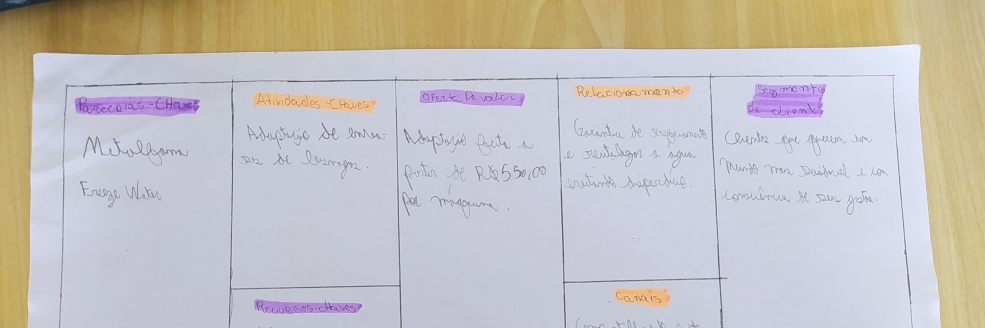 Parcerias-Chaves
Metalfama
Freeze Water
Atividades-Chaves
Adaptação de
de lavagem.
Recursos-chaves
Oferta de valor
Adaptação feita a
partir de R$550,00
por máquina.
Relacionamento
Garantia de
e reutilizar a água
evitando desperdício.
Canais
Segmento
de clientes
Clientes que querem um
mundo mais e com
consciência de seus gastos.